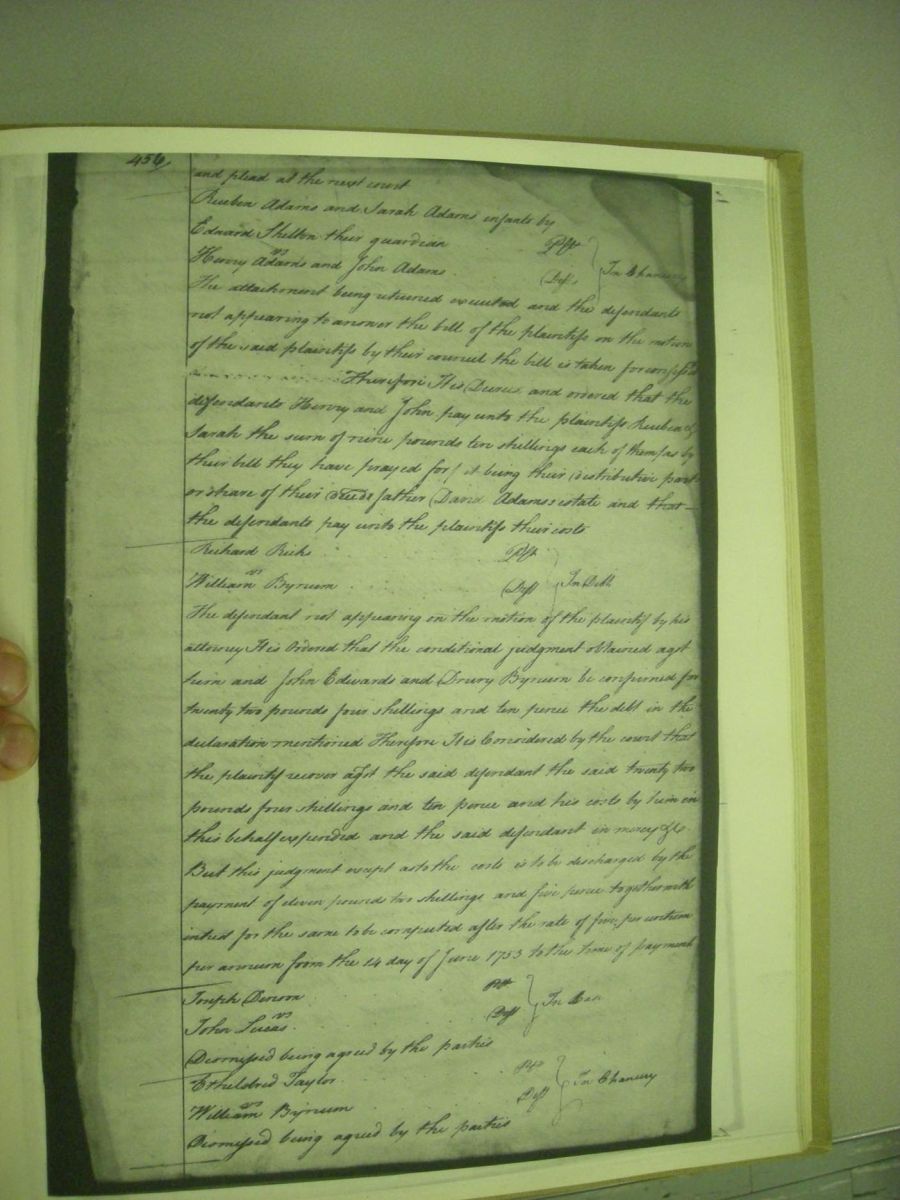 456
and plead at the next court
Reuben Adams and Sarah Adams infants by
Edward Shelton their guardian Plfts
vs
Henry Adams and John Adams Defts In Chancery
The attachment being returned executed and the defendants
not appearing to answer the bill of the plaintiffs on the motion
of the said plaintiffs by their council the bill is taken for confessed
Therefore It is Decreed and ordered that the
defendants Henry and John pay unto the plaintiffs Reuben &
Sarah the sum of nine pounds ten shellings each of them (as by
their bill they have prayed for) it being their distributive part
or share of their decds father David Adamss estate and that
the defendants pay unto the plaintiffs their costs
Richard Ricks Plft
vs
William Bynum Deft In Debt
The defendant not appearing on the motion of the plaintif by his
attorney It is Ordered that the conditional judgment obtained agst
him and John Edwards and Drury Bynum be confirmed for
twenty two pounds four shellings and ten pence the debt in the
declaration mentioned Therefore It is Considered by the court that
the plaintif recover agst the said defendant the said twenty two
pounds four shellings and ten pence and his costs by him in
this behalf expended and the said defendant in mercy &c
But this judgment except as to the costs is to be discharged by the
payment of eleven pounds two shellings and five pence together with
intrest for the same to be computed after the rate of five per centum
per annum from the 14 day of June 1753 to the time of payment
Joseph Plt
vs
John Lucas Deft In
Dismissed being agreed by the parties
Etheldred Taylor Plt
vs
William Bynum Deft In Chancery
Dismissed being agreed by the parties